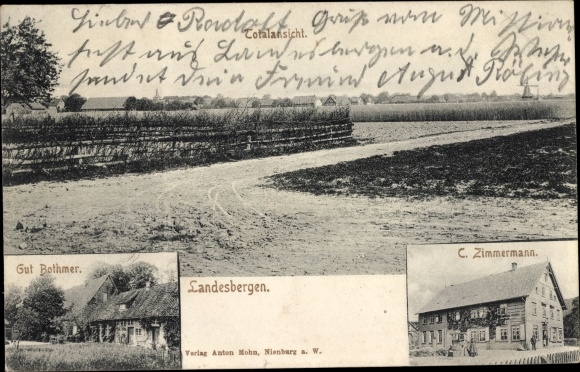 Lieber Rudolf Gruß vom Mission
fest aus Landesbergen a. d. Weser
sendet dein Freund August Röbing
Totalansicht.
Gut Bothmer.
C. Zimmermann.
Landesbergen.
Verlag Anton Mohn, Nienburg a. W.